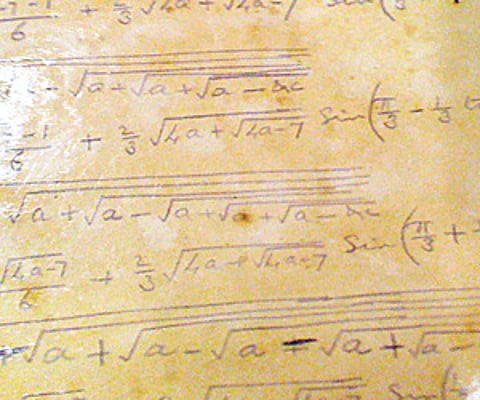 -1/6 + 2/3 √4a + √4a-7 Sin(
√a + √a + √a - &c
-1/6 + 2/3 √4a + √4a-7 Sin(π/3 - 1/3
√a + √a - √a + √a + √a - &c
√4a-7/6 + 2/3 √4a + √4a-7 Sin(π/3 +
√a + √a - √a + √a + √a -
Sin(